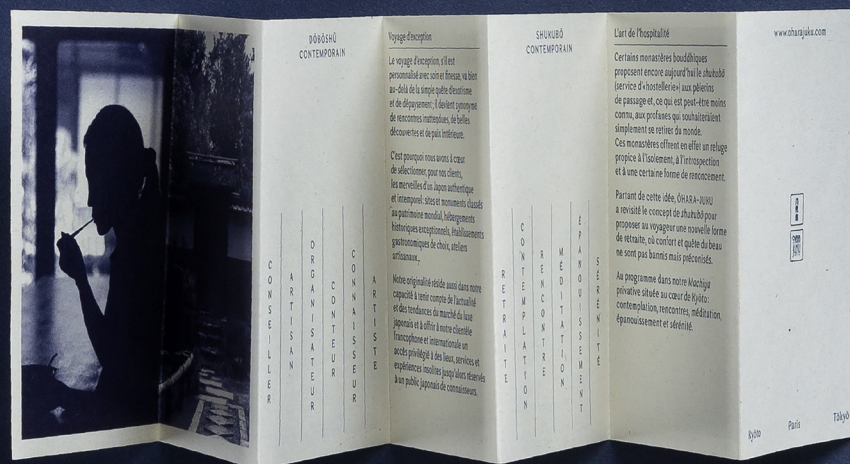 DŌBŌSHŪ
CONTEMPORAIN
CONSEILLER
ARTISAN
ORGANISATEUR
CONTEUR
CONNAISSEUR
ARTISTE
Voyage d'exception
Le voyage d'exception, s'il est
personnalisé avec soin et finesse, va bien
au-delà de la simple quête d'exotisme
et de dépaysement ; il devient synonyme
de rencontres inattendues, de belles
découvertes et de paix intérieure.
C'est pourquoi nous avons à cœur
de sélectionner, pour nos clients,
les merveilles d'un Japon authentique
et intemporel : sites et monuments classés
au patrimoine mondial, hébergements
historiques exceptionnels, établissements
gastronomiques de choix, ateliers
artisanaux...
Notre originalité réside aussi dans notre
capacité à tenir compte de l'actualité
et des tendances du marché du luxe
japonais et à offrir à notre clientèle
francophone et internationale un
accès privilégié à des lieux, services et
expériences insolites jusqu'alors réservés
à un public japonais de connaisseurs.
SHUKUBŌ
CONTEMPORAIN
RETRAITE
CONTEMPLATION
RENCONTRE
MÉDITATION
ÉPANOUISSEMENT
SÉRÉNITÉ
L'art de l'hospitalité
Certains monastères bouddhiques
proposent encore aujourd'hui le shukubō
(service d'« hostellerie ») aux pèlerins
de passage et, ce qui est peut-être moins
connu, aux profanes qui souhaiteraient
simplement se retirer du monde.
Ces monastères offrent en effet un refuge
propice à l'isolement, à l'introspection
et à une certaine forme de renoncement.
Partant de cette idée, ŌHARA-JUKU
a revisité le concept de shukubō pour
proposer au voyageur une nouvelle forme
de retraite, où confort et quête du beau
ne sont pas bannis mais préconisés.
Au programme dans notre Machiya
privative située au cœur de Kyōto :
contemplation, rencontres, méditation,
épanouissement et sérénité.
www.oharajuku.com
Kyōto
Paris
Tōkyō